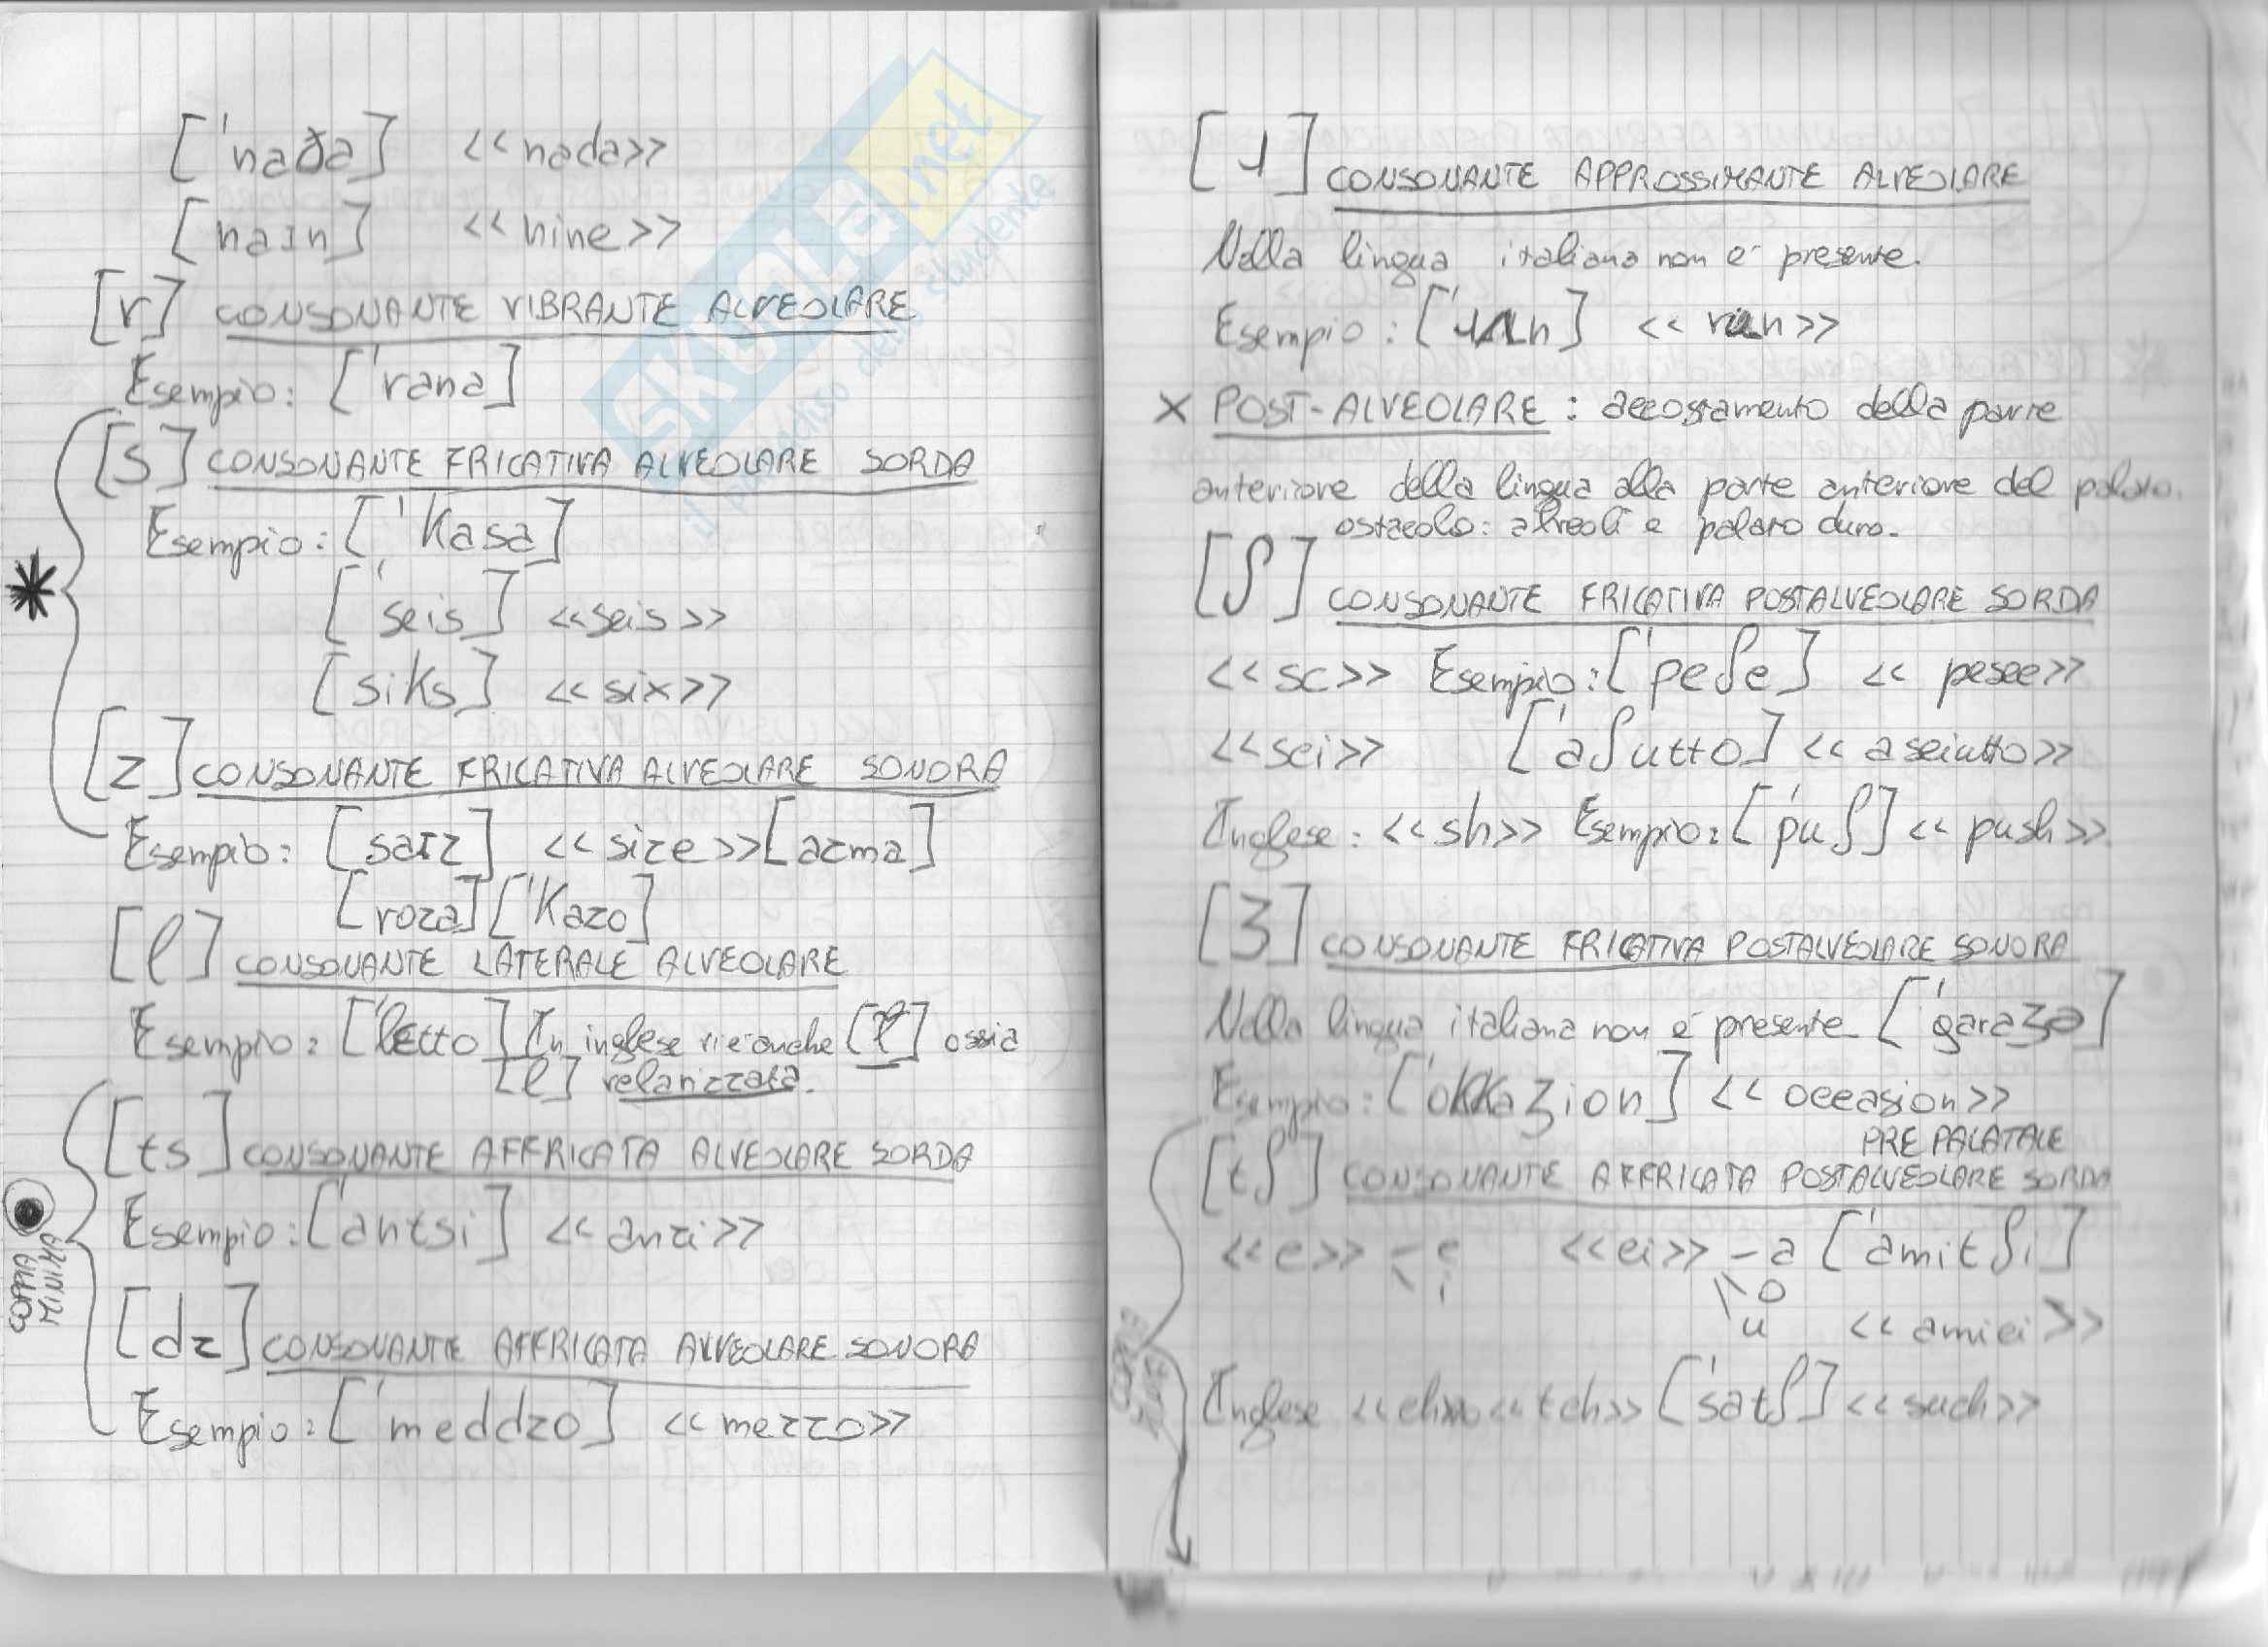 ['naða] <<nada>>
[naɪn] <<nine>>
[r] CONSONANTE VIBRANTE ALVEOLARE
Esempio: ['rana]
[s] CONSONANTE FRICATIVA ALVEOLARE SORDA
Esempio: ['kasa]
['seis] <<seis>>
[siks] <<six>>
[z] CONSONANTE FRICATIVA ALVEOLARE SONORA
Esempio: [saɪz] <<size>> [azma]
[roza] ['kazo]
[l] CONSONANTE LATERALE ALVEOLARE
Esempio: ['letto] In inglese vi è anche [ɫ] ossia
[l] velarizzata.
[ts] CONSONANTE AFFRICATA ALVEOLARE SORDA
Esempio: ['antsi] <<anzi>>
COPPIA
MINIMA
[dz] CONSONANTE AFFRICATA ALVEOLARE SONORA
Esempio: ['meddzo] <<mezzo>>
SKUOLA.net
il paradiso dello studente
[ɹ] CONSONANTE APPROSSIMANTE ALVEOLARE
Nella lingua italiana non è presente.
Esempio: ['ɹʌn] <<run>>
x POST-ALVEOLARE: accostamento della parte
anteriore della lingua alla parte anteriore del palato.
ostacolo: alveoli e palato duro.
[ʃ] CONSONANTE FRICATIVA POSTALVEOLARE SORDA
<<sc>> Esempio: ['peʃe] <<pesce>>
<<sci>> ['aʃutto] <<asciutto>>
Inglese: <<sh>> Esempio: ['puʃ] <<push>>
[ʒ] CONSONANTE FRICATIVA POSTALVEOLARE SONORA
Nella lingua italiana non è presente ['garaʒə]
Esempio: ['okkaʒion] <<occasion>>
PREPALATALE
[tʃ] CONSONANTE AFFRICATA POSTALVEOLARE SORDA
<<c>> - e <<ci>> - a ['amitʃi]
i o
u <<amici>>
Inglese <<ch>> <<tch>> ['satʃ] <<such>>